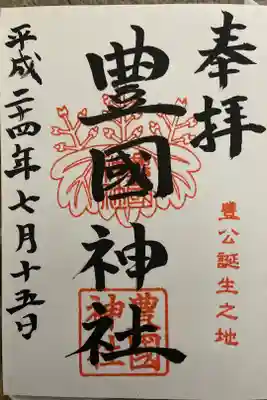 奉拝
豊公誕生之地
豊國神社
豊國神社
平成二十四年七月十五日